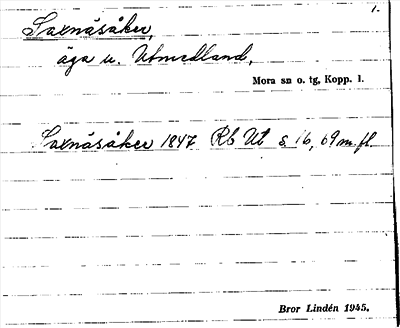 1.
Saxnäsåker,
äga u. Utmedland,
Mora sn o. tg, Kopp. l.
Saxnäsåker 1847 Rb Ut s 16, 69 m. fl.
Bror Lindén 1945.